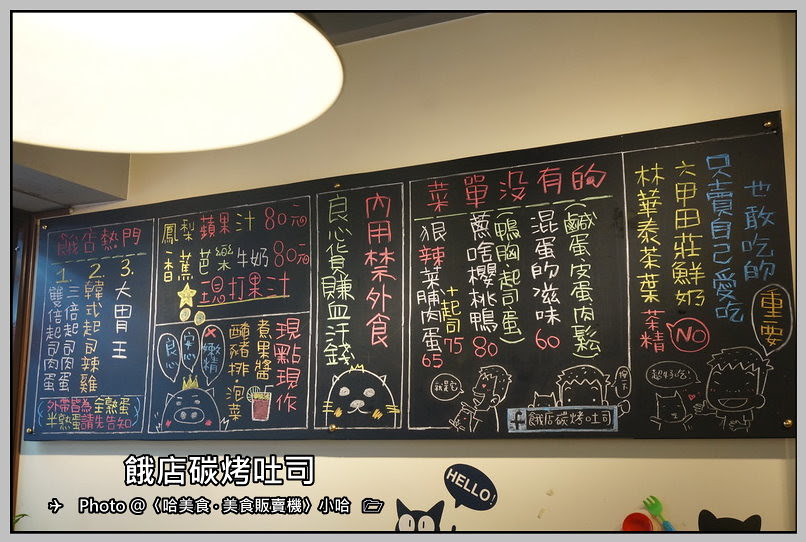 餓店熱門
1. 雙倍起司肉蛋
三倍起司肉蛋
2. 韓式起司辣雞
3. 大胃王
外帶皆為全熟蛋
半熟蛋請先告知
鳳梨蘋果汁80元
香蕉芭樂牛奶80元
現打果汁
良心
安心
嫩精
現點現作
煮果醬
醃豬排·泡菜
內用禁外食
良心貨賺血汗錢
菜單没有的
(鹹蛋皮蛋肉鬆)
混蛋的滋味60
(鴨胸起司蛋)
蔥啥櫻桃鴨80
+起司75
狠辣菜脯肉蛋65
餓店碳烤吐司
重要
也敢吃的
只賣自己愛吃
六甲田莊鮮奶
林華泰茶葉
茶精
NO
超好吃!
HELLO!
餓店碳烤吐司
Photo @〈哈美食·美食販賣機〉小哈